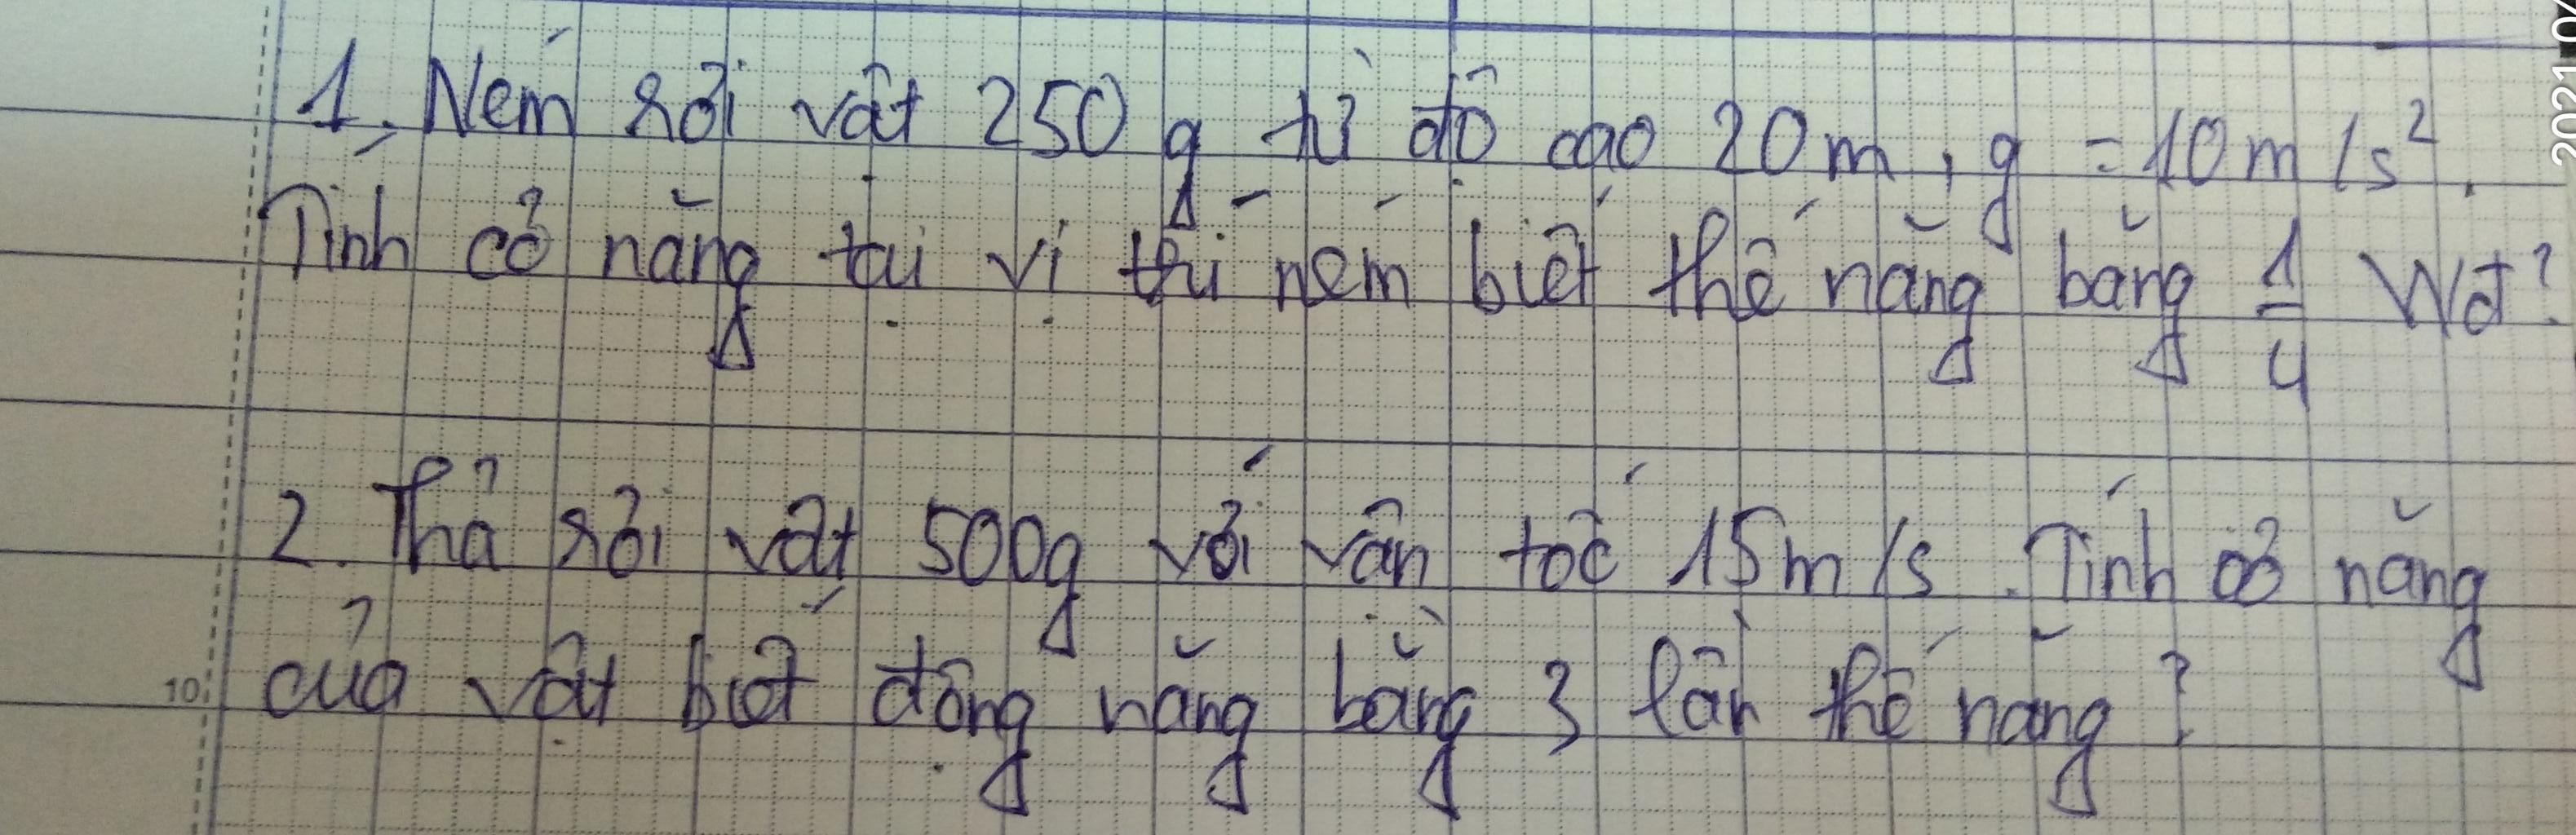 1, Ném rơi vật 250 g từ độ cao 20 m, g = 10 m/s².
Tính cơ năng tại vị trí ném biết thế năng bằng 1/4 Wđ?
2. Thả rơi vật 500g với vận tốc 15m/s. Tính cơ năng
của vật biết động năng bằng 3 lần thế năng?
10
2021.04